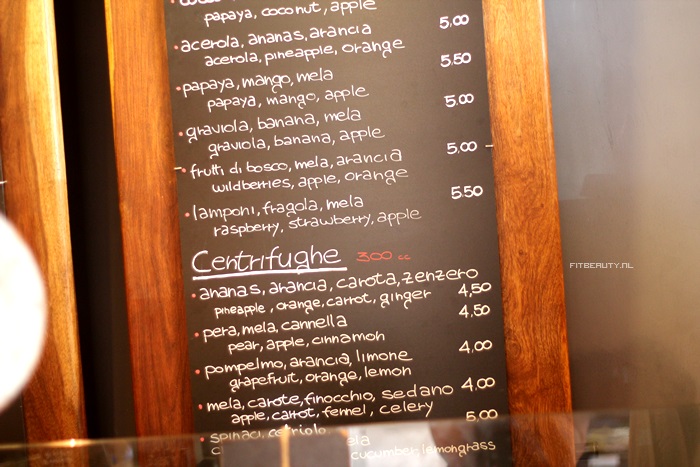 papaya, coconut, apple
5,00
• acerola, ananas, arancia
acerola, pineapple, orange
5,50
• papaya, mango, mela
papaya, mango, apple
5,00
• graviola, banana, mela
graviola, banana, apple
5,00
• frutti di bosco, mela, arancia
wildberries, apple, orange
5,50
• lamponi, fragola, mela
raspberry, strawberry, apple
Centrifughe 300 cc
• ananas, arancia, carota, zenzero
pineapple, orange, carrot, ginger 4,50
• pera, mela, cannella 4,50
pear, apple, cinnamon
• pompelmo, arancia, limone 4,00
grapefruit, orange, lemon
• mela, carote, finocchio, sedano 4,00
apple, carrot, fennel, celery
• spinaci, cetriolo 5,00
cucumber, lemongrass
FITBEAUTY.NL